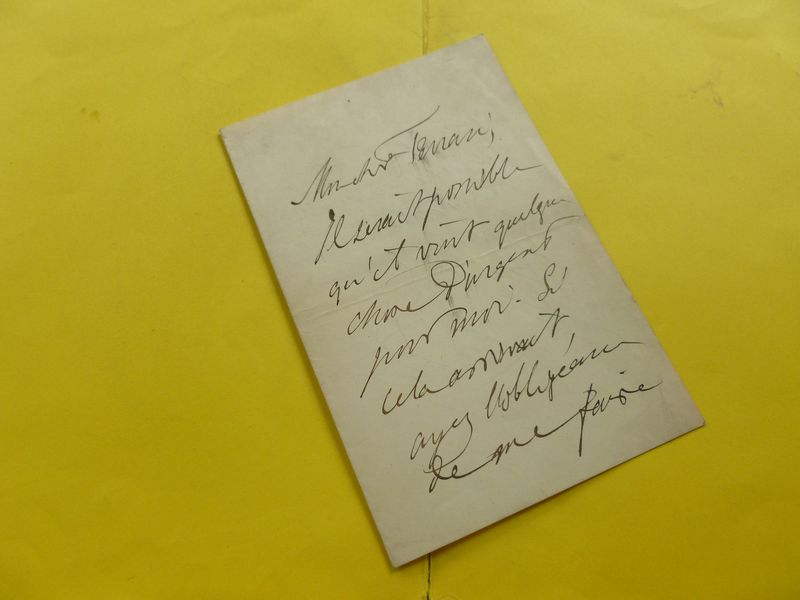 Mon cher Ferrari,
Il serait possible
qu'il vint quelque
chose d'urgent
pour moi. Si
cela arrivait,
ayez l'obligeance
de me faire